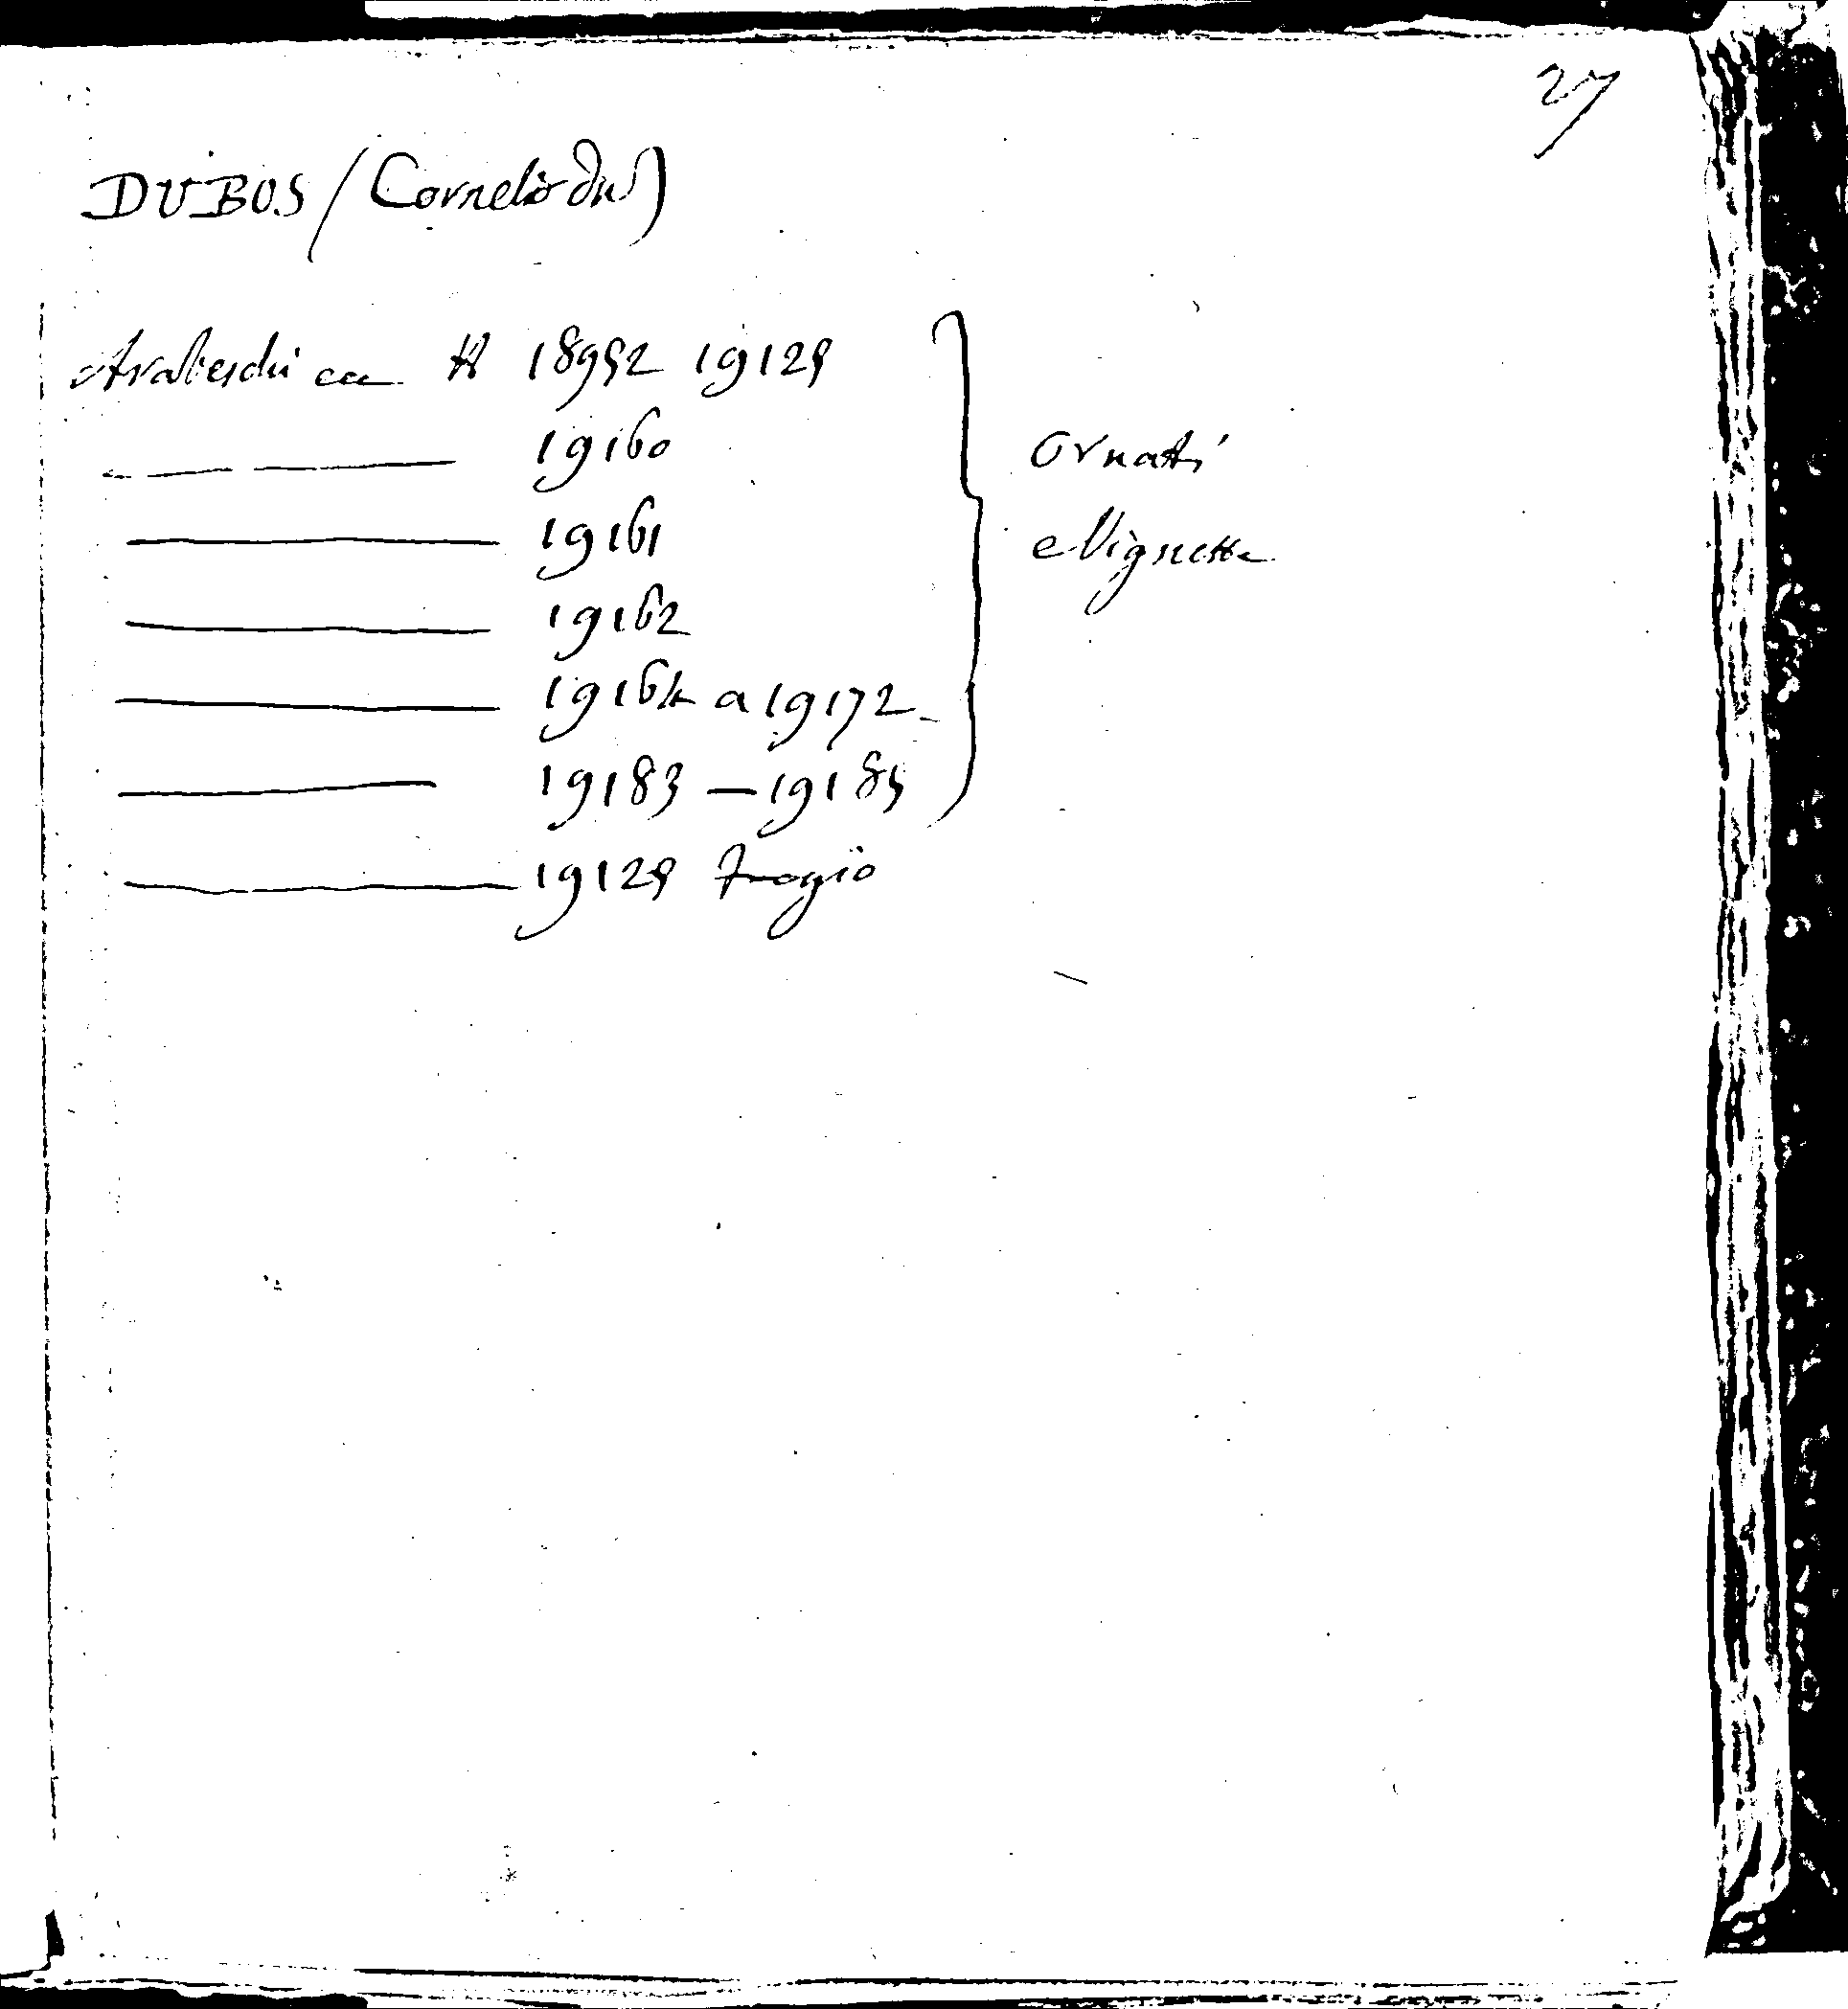 27
DUBOS (Cornelio du)
Arabeschi ecc H 18952 19129
19160
19161
19162
19164 a 19172
19183 — 19185
19129 fregio
Ornati
e Vignette